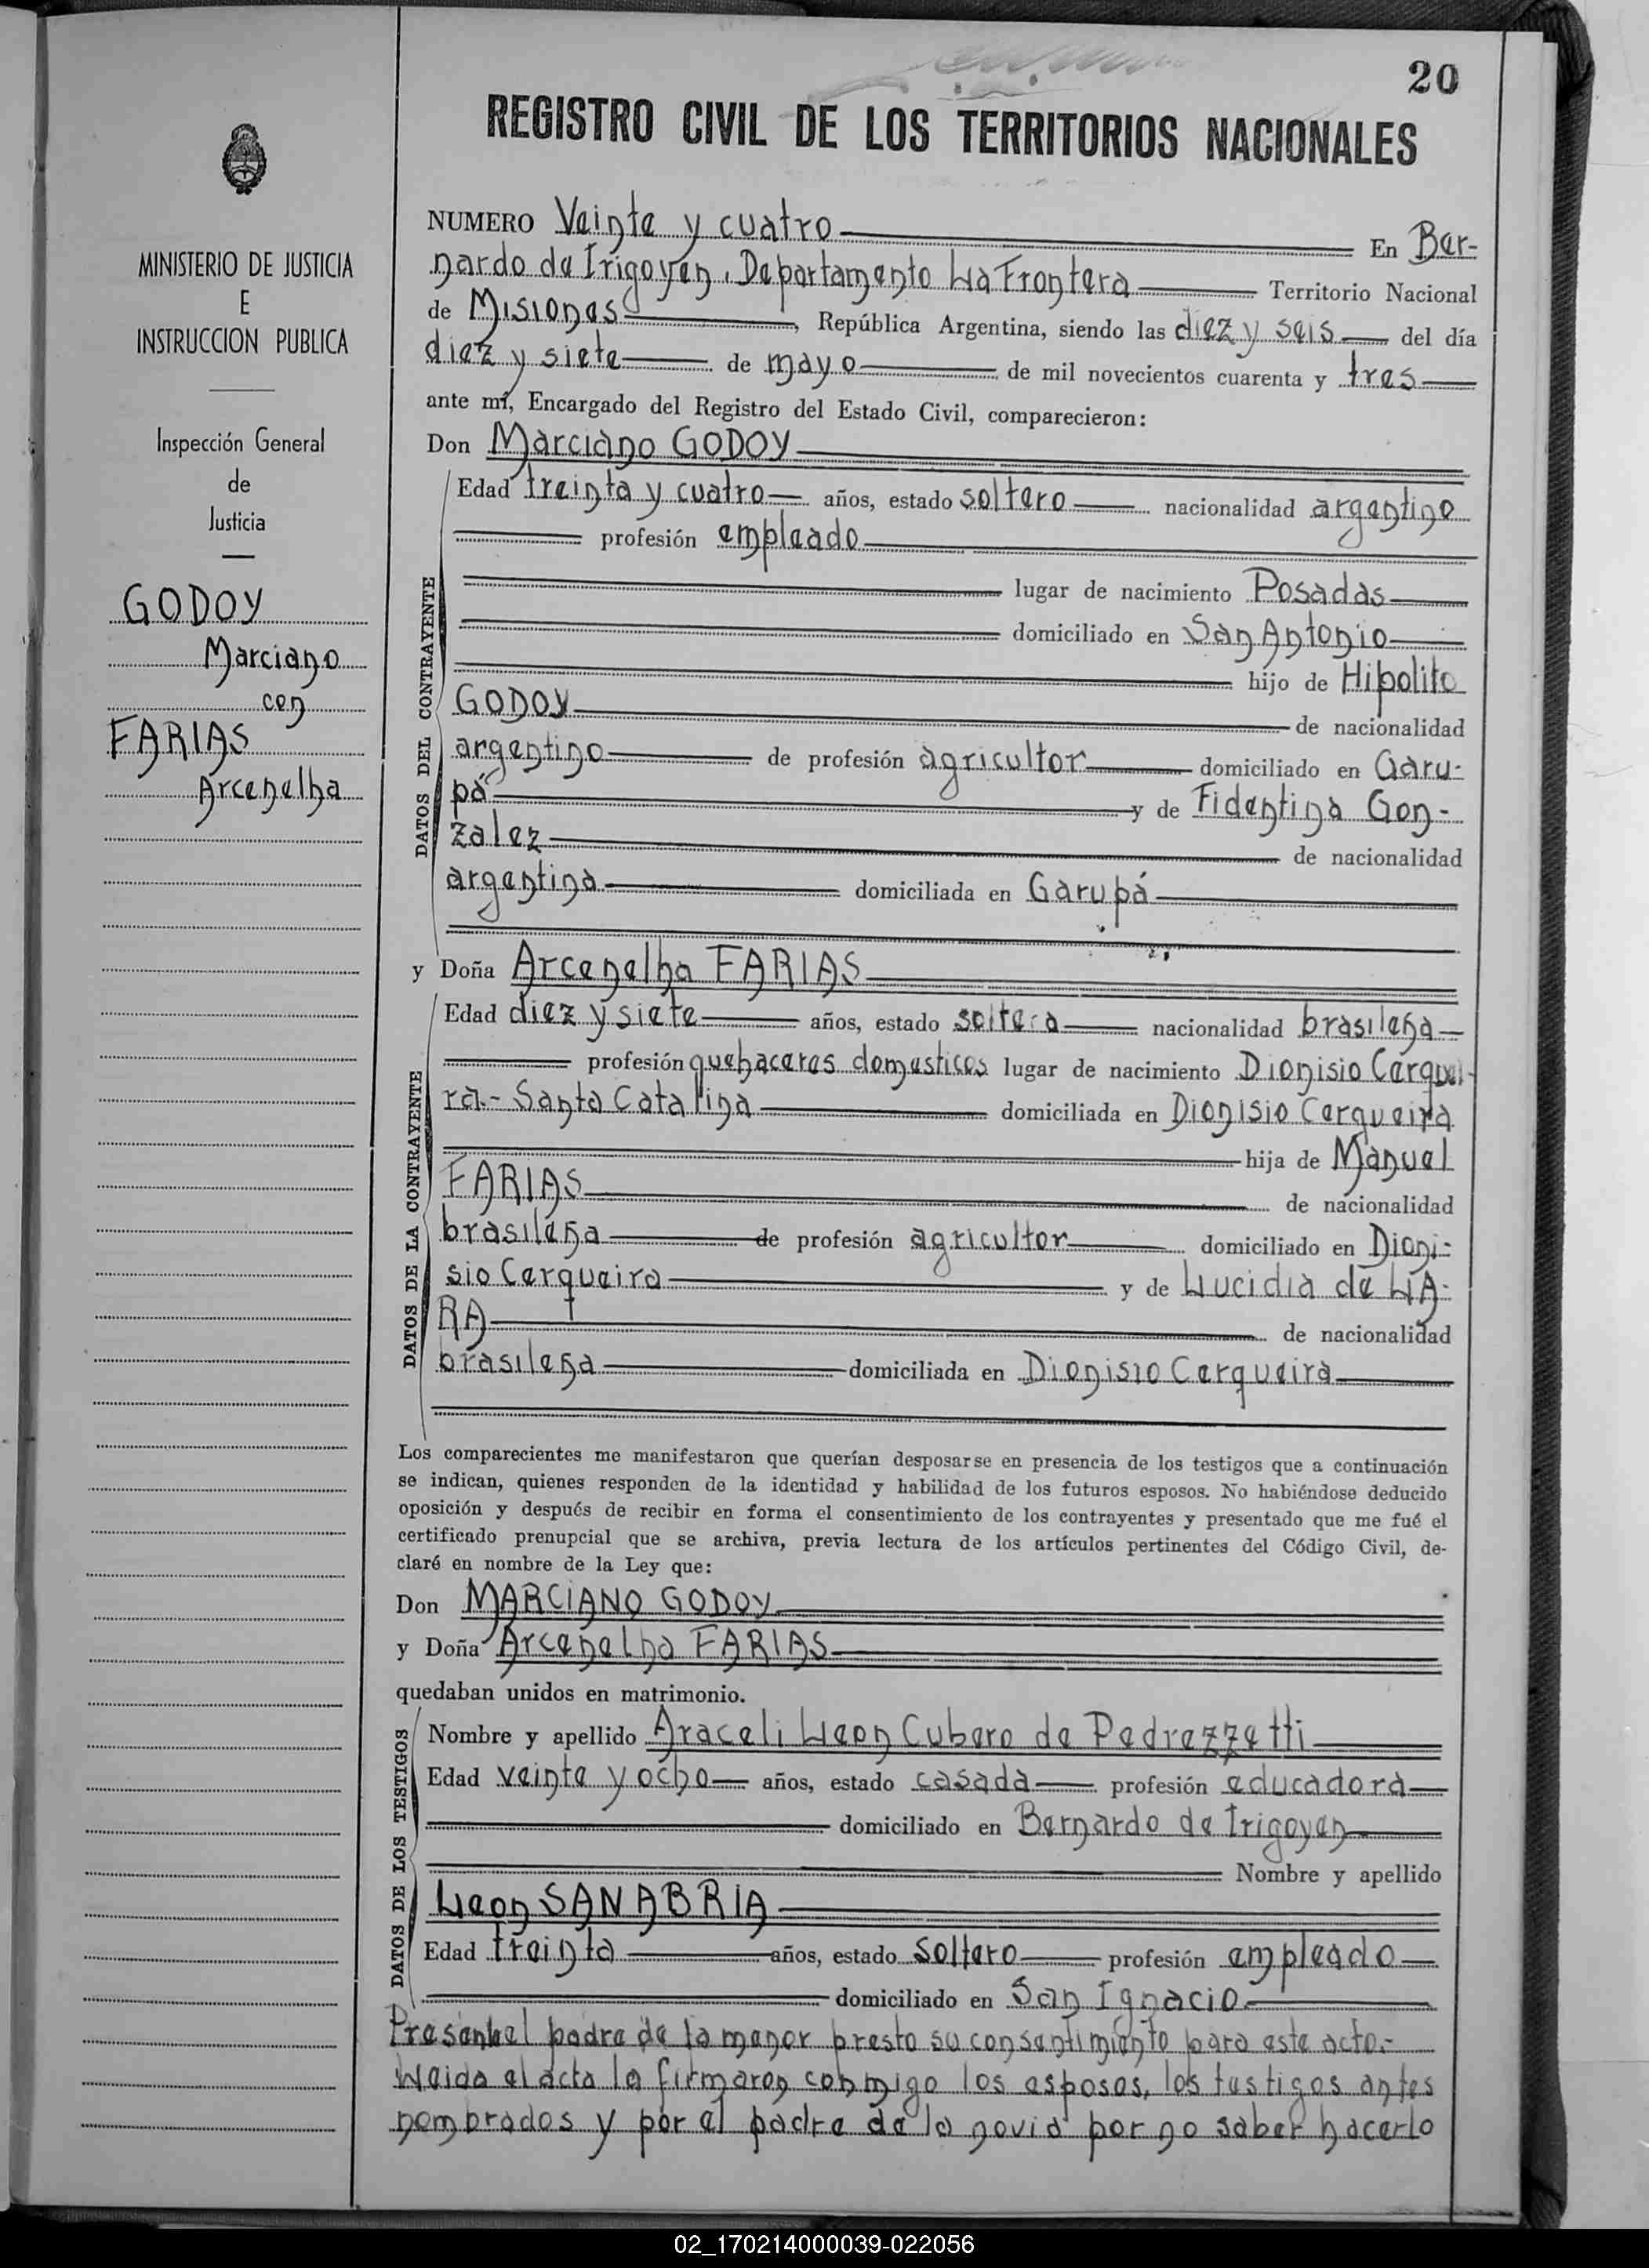 20
REGISTRO CIVIL DE LOS TERRITORIOS NACIONALES
MINISTERIO DE JUSTICIA
E
INSTRUCCION PUBLICA
Inspección General
de
Justicia
GODOY
Marciano
con
FARIAS
Arcenelha
NUMERO Veinte y cuatro En Ber-
nardo de Irigoyen, Departamento La Frontera Territorio Nacional
de Misiones, República Argentina, siendo las diez y seis del día
diez y siete de mayo de mil novecientos cuarenta y tres
ante mí, Encargado del Registro del Estado Civil, comparecieron:
Don Marciano GODOY
DATOS DEL CONTRAYENTE
Edad treinta y cuatro años, estado soltero nacionalidad argentino
profesión empleado
lugar de nacimiento Posadas
domiciliado en San Antonio
hijo de Hipolito
GODOY de nacionalidad
argentino de profesión agricultor domiciliado en Garu-
pá y de Fidentina Gon-
zalez de nacionalidad
argentina domiciliada en Garupá
y Doña Arcenelha FARIAS
DATOS DE LA CONTRAYENTE
Edad diez y siete años, estado soltera nacionalidad brasileña
profesión quehaceres domesticos lugar de nacimiento Dionisio Cerquei-
ra.- Santa Catalina domiciliada en Dionisio Cerqueira
hija de Manuel
FARIAS de nacionalidad
brasileña de profesión agricultor domiciliado en Dioni-
sio Cerqueira y de Lucidia de LA-
RA de nacionalidad
brasileña domiciliada en Dionisio Cerqueira
Los comparecientes me manifestaron que querían desposarse en presencia de los testigos que a continuación
se indican, quienes responden de la identidad y habilidad de los futuros esposos. No habiéndose deducido
oposición y después de recibir en forma el consentimiento de los contrayentes y presentado que me fué el
certificado prenupcial que se archiva, previa lectura de los artículos pertinentes del Código Civil, de-
claré en nombre de la Ley que:
Don MARCIANO GODOY
y Doña Arcenelha FARIAS
quedaban unidos en matrimonio.
DATOS DE LOS TESTIGOS
Nombre y apellido Araceli Leon Cubero de Pedrezzetti
Edad veinte y ocho años, estado casada profesión educadora
domiciliado en Bernardo de Irigoyen
Nombre y apellido
Leon SANABRIA
Edad treinta años, estado soltero profesión empleado
domiciliado en San Ignacio
Presente el padre de la menor presto su consentimiento para este acto.-
Leida el acta la firmaron conmigo los esposos, los testigos antes
nombrados y por el padre de la novia por no saber hacerlo
02_170214000039-022056